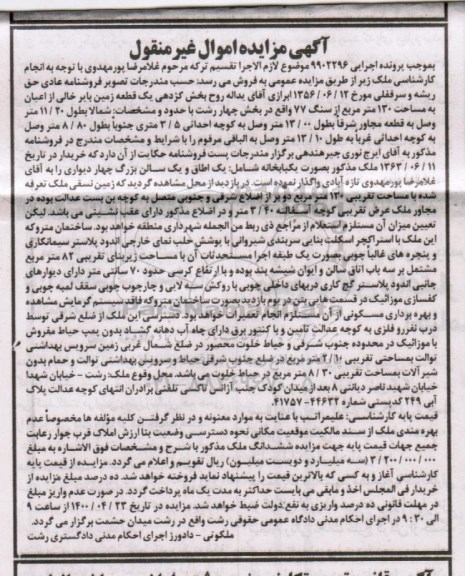 آگهی مزایده اموال غیر منقول
بموجب پرونده اجرایی ۹۹۰۲۲۹۶ موضوع لازم الاجرا تقسیم ترکه مرحوم غلامرضا پورمهدوی با توجه به انجام
کارشناسی ملک زیر از طریق مزایده عمومی به فروش می رسد: حسب مندرجات تصویر فروشنامه عادی حق
ریشه و سرقفلی مورخ ۱۲ / ۰۶ / ۱۳۵۶ ابرازی آقای یداله روح بخش کزدهی یک قطعه زمین بایر خالی از اعیان
به مساحت ۱۳۰ متر مربع از سنگ ۷۷ واقع در بخش چهار رشت با حدود و مشخصات: شمالا بطول ۲۰ / ۱۱ متر
وصل به قطعه مجاور شرقا بطول ۰۰ / ۱۳ متر وصل به کوچه احداثی ۵ / ۳ متری جنوبا بطول ۸۰ / ۸ متر وصل
به کوچه احداثی غربا به طول ۱۰ / ۱۳ متر وصل به الباقی مرقوم را با شرایط و مشخصات مندرج در فروشنامه
مذکور به آقای ایرج نوری جیرهندهی برگزار مندرجات پست فروشنامه حکایت از آن دارد که خریدار در تاریخ
۱۱ / ۰۶ / ۱۳۶۳ ملک مذکور بصورت یکبابخانه شامل: یک اطاق و یک سالن بزرگ چهار دیواری را به آقای
غلامرضا پورمهدوی تازه آبادی واگذار نموده است. در بازدید از محل مشاهده گردید که زمین نسقی ملک تعرفه
شده با مساحت تقریبی ۱۳۰ متر مربع دو بر از اضلاع شرقی و جنوبی متصل به کوچه بن بست عدالت بوده در
مجاور ملک عرض تقریبی کوچه ۴۰ / ۳ متر و در اضلاع مذکور دارای عقب نشینی می باشد. لیکن
تعیین میزان آن مستلزم استعلام از مراجع ذی ربط من الجمله شهرداری منطقه خواهد بود. ساختمان متروکه
این ملک با استراکچر اسکلت بنایی سربندی شیروانی با پوشش حلب نمای خارجی اندود پلاستر سیمانکاری
و پنجره های غالبا چوبی بصورت یک طبقه اجرا مستحدثات آن با مساحت زیربنای تقریبی ۸۲ متر مربع
مشتمل بر سه باب اتاق سالن و ایوان شیشه بند بوده و با ارتفاع کرسی حدود ۷۰ سانتی متر دارای دیوارهای
جانبی اندود پلاستر گچ کاری دربهای داخلی چوبی با روکش سه لایی و چارچوب چوبی سقف لمبه چوبی و
کفسازی موزائیک در قسمت هایی بتن در یوم بازدید بصورت ساختمان متروکه فاقد سیستم گرمایش مشاهده
و بهره برداری مسکونی از آن مستلزم انجام تعمیرات خواهد بود. دسترسی این ملک از ضلع شرقی توسط
درب نفررو فلزی به کوچه عدالت تامین و با کنتور برق دارای چاه آب دهانه گشاد بدون پمپ حیاط مفروش
با موزائیک در محدوده جنوب شرقی و حیاط خلوت محصور در ضلع شمال غربی زمین سرویس بهداشتی
توالت بمساحتی تقریبی ۱۰ / ۲ متر مربع در ضلع جنوب شرقی حیاط و سرویس بهداشتی توالت و حمام بدون
شیر آلات بمساحت تقریبی ۳۰ / ۸ متر مربع در حیاط خلوت می باشد. محل وقوع ملک: رشت - خیابان شهدا
خیابان شهید ناصر دیانتی ۸ بعد از میدان کودک جنب آژانس تاکسی تلفنی برادران انتهای کوچه عدالت پلاک
آبی ۲۴۹ کدپستی شماره ۴۴۶۳۳-۴۱۷۵۷.
قیمت پایه کارشناسی: علیمراتب با عنایت به موارد معنونه و در نظر گرفتن کلیه مؤلفه ها مخصوصا عدم
بهره مندی ملک از سند مالکیت موقعیت مکانی نحوه دسترسی وضعیت بنا ارزش املاک قرب جوار رعایت
جمیع جهات قیمت پایه جهت مزایده ششدانگ ملک مذکور با شرح و مشخصات فوق الاشاره به مبلغ
۳ / ۲۰۰ / ۰۰۰ / ۰۰۰ (سه میلیارد و دویست میلیون) ریال تقویم و اعلام می گردد. مزایده از قیمت پایه
کارشناسی آغاز و به کسی که بالاترین قیمت را پیشنهاد نماید فروخته خواهد شد. ده درصد مبلغ مزایده از
خریدار فی المجلس اخذ و مابقی می بایست حداکثر به مدت یک ماه پرداخت گردد. در صورت عدم واریز مبلغ
در مهلت قانونی ده درصد واریزی به نفع دولت ضبط خواهد شد. مزایده در تاریخ ۲۳ / ۰۴ / ۱۴۰۰ از ساعت ۹
الی ۹:۳۰ در اجرای احکام مدنی دادگاه عمومی حقوقی رشت واقع در رشت میدان حشمت برگزار می گردد.
ملکوتی - دادورز اجرای احکام مدنی دادگستری رشت